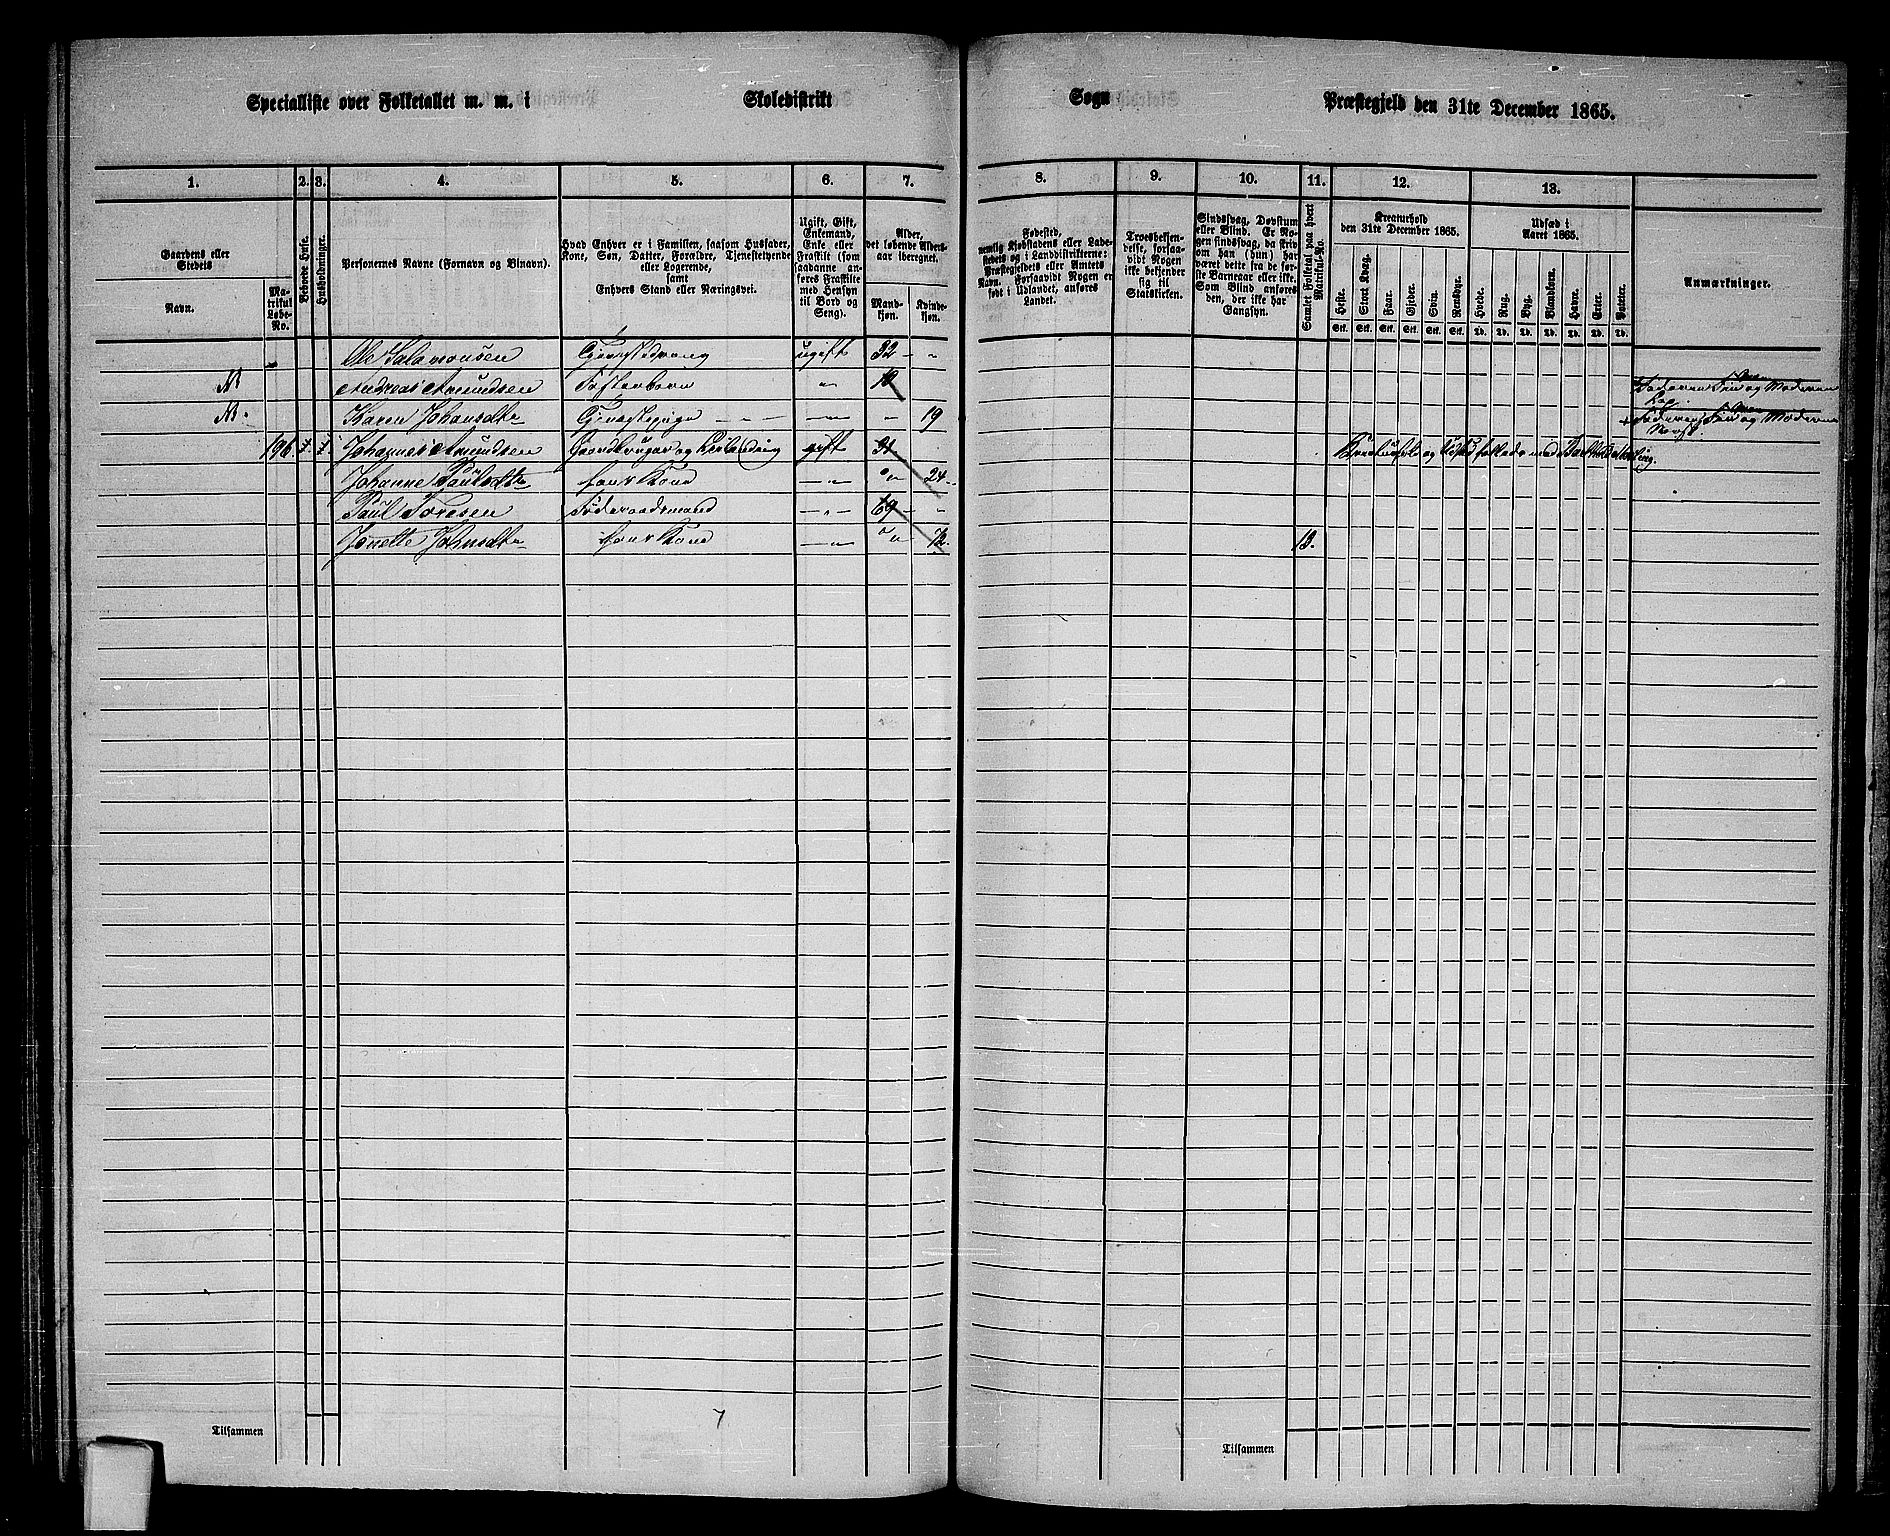 Specialliste over Folketallet m. m. i Skoledistrikt Sogn Præstegjeld den 31te December 1865.
1. 2. 3. 4. 5. 6. 7. 8. 9. 10. 11. 12. 13.
Gaardens eller Stedets
Navn.
Matrikul Løbe-No.
Beboede Huse.
Husholdninger.
Personernes Navne (Fornavn og Binavn).
Hvad Enhver er i Familien, saasom Husfader, Kone, Søn, Datter, Forældre, Tjenestetyende eller Logerende,
samt
Enhvers Stand eller Næringsvei.
Ugift, Gift, Enkemand, Enke eller Fraskilt (som saadanne anføres Fraskilte med Hensyn til Bord og Seng).
Alder, det løbende Alders-aar iberegnet.
Mandkjøn.
Kvindekjøn.
Fødested, nemlig Kjøbstadens eller Ladestedets og i Landdistrikterne: Præstegjeldets eller Amtets Navn. Forsaavidt Nogen er født i Udlandet, anføres Landet.
Troesbekjendelse, forsaavidt Nogen ikke bekjender sig til Statskirken.
Sindssvag, Døvstum eller Blind. Er Nogen sindssvag, da skrives om han (hun) har været dette fra de første Barneaar eller ikke. Som Blind anføres den, der ikke har Gangsyn.
Samlet Folketal paa hvert Matrikul-No.
Kreaturhold den 31te December 1865.
Heste. Stort Kvæg. Faar. Gjeder. Svin. Rensdyr.
Stk. Stk. Stk. Stk. Stk. Stk.
Udsæd i Aaret 1865.
Hvede. Rug. Byg. Blandkorn. Havre. Erter. Poteter.
Td. Td. Td. Td. Td. Td. Td.
Anmærkninger.
Ole Salamonsen Tjenestedreng ugift 32 - "
N Andreas Amundsen Fosterbarn " 10
N. Karen Johansdtr Tjenestepige - " - - 19
196 1 1 Johannes Amundsen Gaardbruger og gift 31
Johanne Paulsdtr hans Kone - " - " 24
Paul Toresen Føderaadsmand - " - 69 - -
Jonette Johnsdtr hans Kone - " " 72. 12.
7
Tilsammen
Tilsammen